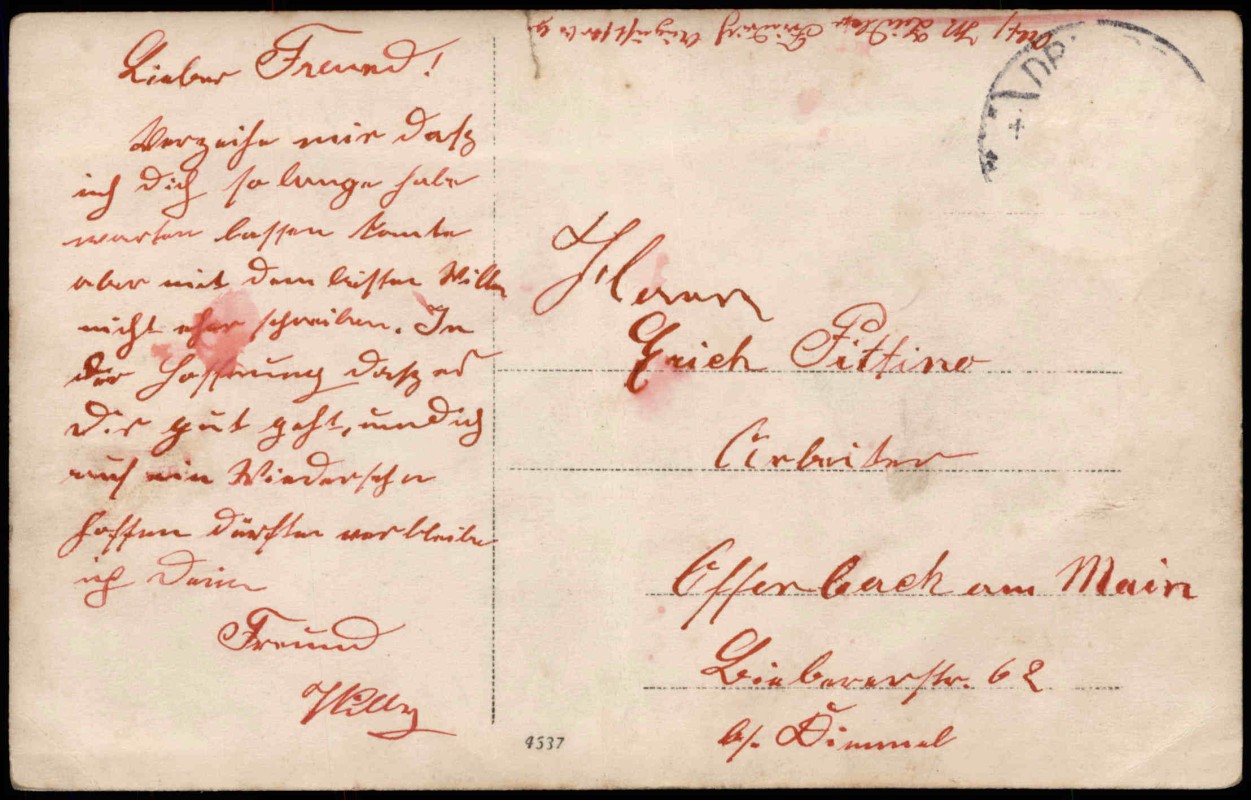 Lieber Freund!
Verzeihe mir dasz
ich Dich so lange habe
warten lassen konte
aber mit dem besten Willen
nicht eher schreiben. In
der Hoffnung dasz es
Dir gut geht, und Dich
auf ein Wiedersehn
hoffen dürfen verbleibe
ich Dein
Freund
Willy
Herrn
Erich Pittino
Arbeiter
Offenbach am Main
Biebererstr. 62
b/. Dimmel
4537